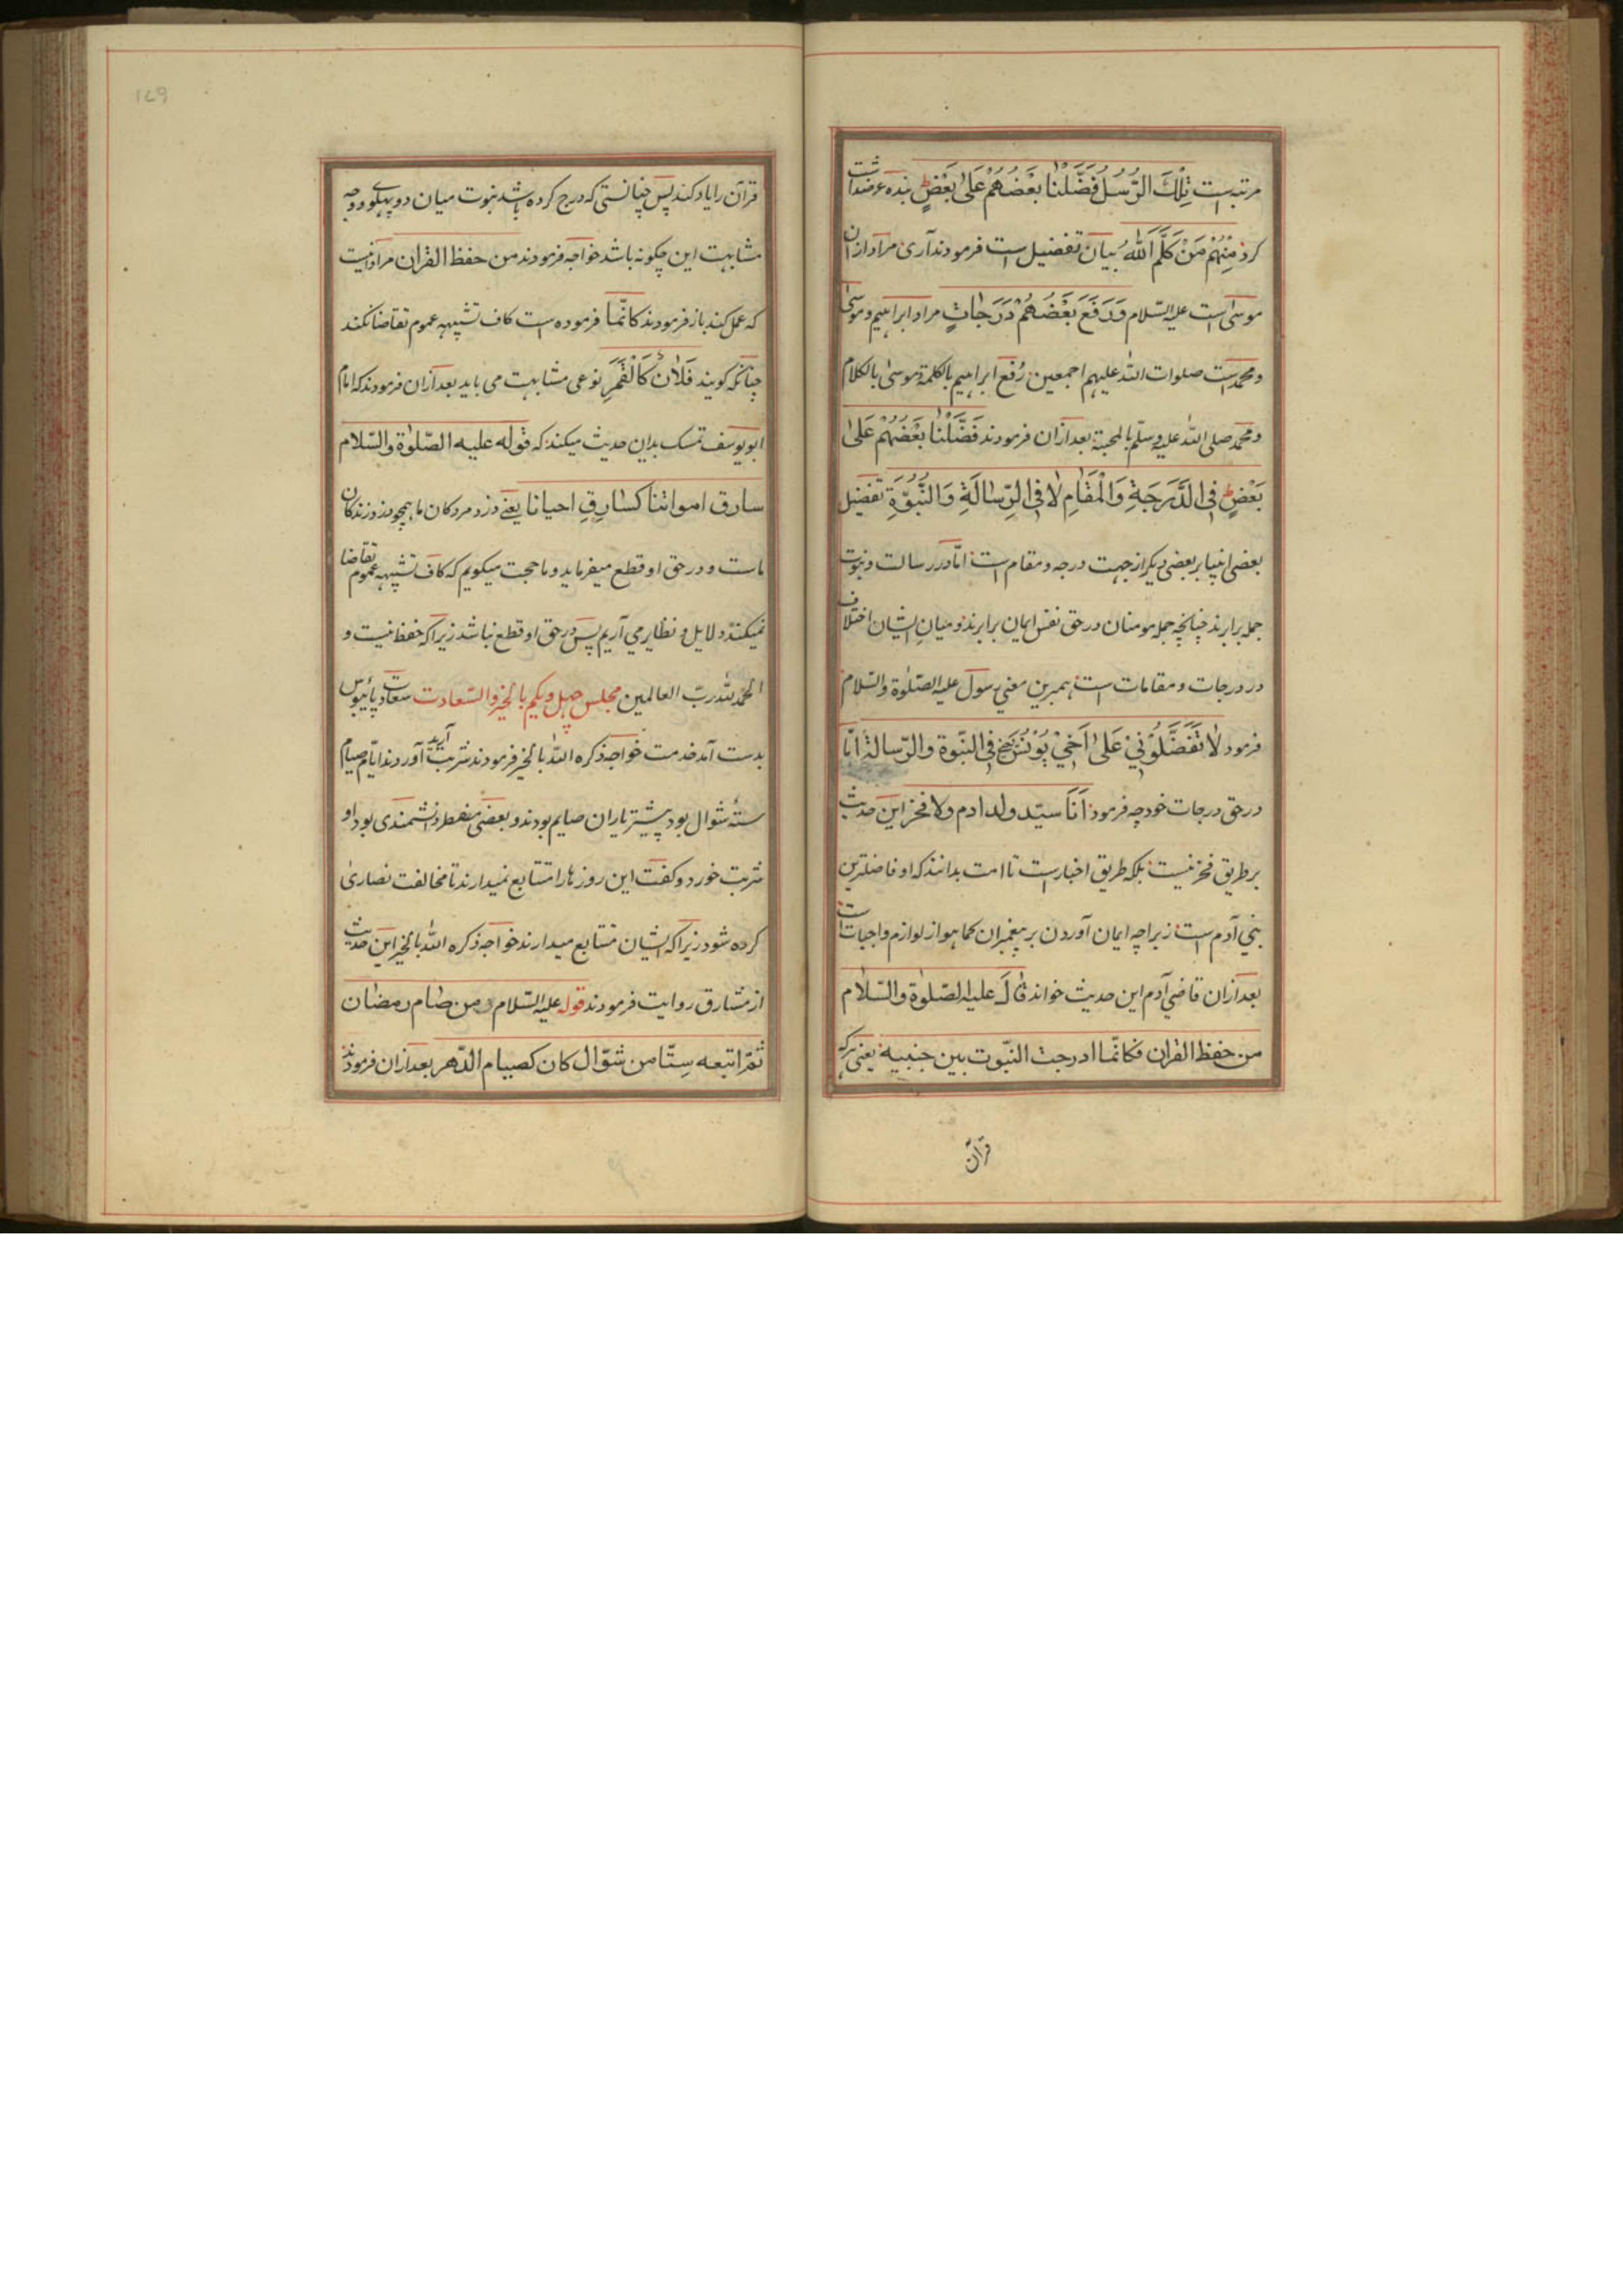 مرتبه است تِلْكَ الرُّسُلُ فَضَّلْنَا بَعْضَهُمْ عَلَىٰ بَعْضٍ بنده عرضداشت
کرد مِنْهُمْ مَنْ كَلَّمَ اللهُ بیان تفضیل است فرمودند آری مراد ازان
موسیٰ است علیه السّلام وَرَفَعَ بَعْضَهُمْ دَرَجَاتٍ مراد ابراهیم و موسیٰ
و محمد است صلوات الله علیهم اجمعین رُفع ابراهیم بالکلمة موسیٰ بالکلام
و محمّد صلی الله علیه وسلّم بالمحبة بعد ازان فرمودند فَضَّلْنَا بَعْضَهُمْ عَلیٰ
بَعْضٍ فِی الدَّرَجَةِ وَالْمَقَامِ لَا فِی الرِّسَالَةِ وَالنُّبُوَّةِ تفضیل
بعضی انبیا بر بعضی دیگر از جهت درجه و مقام است امّا در رسالت و نبوت
جمله برابرند چنانچه جمله مومنان در حق نفس ایمان برابرند و میان ایشان اختلاف
در درجات و مقامات است همبرین معنی رسول علیه الصّلوٰة والسّلام
فرمود لَا تَفَضَّلُوْنِیْ عَلیٰ اَخِیْ یُوْنُسَ فی النّبوة والرّسالة امّا
در حق درجات خود چه فرمود اَنَا سیّد ولد ادم ولا فخر این حدیث
بر طریق فخر نیست بلکه طریق اخبار است تا امت بدانند که او فاضلترین
بنی آدم است زیراچه ایمان آوردن بر پیغمبران کما هو از لوازم واجبات است
بعد ازان قاضی آدم این حدیث خواند قَالَ علیه الصّلوٰة والسّلام
من حفظ القران فکانّما ادرجت النبّوت بین جنبیه یعنی هرکه
قرآن
قرآن را یاد کند پس چنانستی که درج کرده باشد نبوت میان دو پهلوی او وجه
مشابهت این چگونه باشد خواجه فرمودند من حفظ القران مراد آنست
که عمل کند باز فرمودند کانّما فرموده است کاف تشبیهه عموم تقاضا نکند
چنانکه گویند فَلَانٌ کَالْقَمَرِ نوعی مشابهت می باید بعد ازان فرمودند که امام
ابو یوسف تمسک بدین حدیث میکند که قوله علیه الصّلوٰة والسّلام
سارق امواتنا کسارِقِ احیانا یعنے دزد مردگان ما همچو دزد زندگان
ماست و در حق او قطع میفرماید و ما حجت میگویم که کاف تشبیهه عموم تقاضا
نمیکند و دلایل و نظایر می آریم پس در حق او قطع نباشد زیرا که حفظ نیست و
الحمد لله ربّ العالمین مجلس چهل و یکم بالخیر والسّعادت سعادت پائبوس
بدست آمد خدمت خواجه ذکره الله بالخیر فرمودند شربت آرید آوردند ایّام صیام
ستّهٔ شوال بود پیشتر یاران صایم بودند و بعضی مفطر دانشمندی بود او
شربت خورد و گفت این روزها را متتابع نمیدارند تا مخالفت نصاریٰ
کرده شود زیرا که ایشان متتابع میدارند خواجه ذکره الله بالخیر این حدیث
از مشارق روایت فرمودند قوله علیه السّلام من صام رمضان
ثمّ اتبعه سِتّا من شوّال کان کصیام الدّهر بعد ازان فرمودند